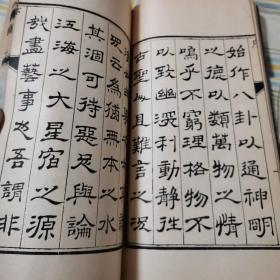 始作八卦以通神明
之德以類萬物之情
嗚乎不窮理格物不
以致幽深利動靜性
古聖且難言之況
云為猶無本之水
其涸可待惡足與論
江海之大星宿之源
哉盡藝事也吾謂非